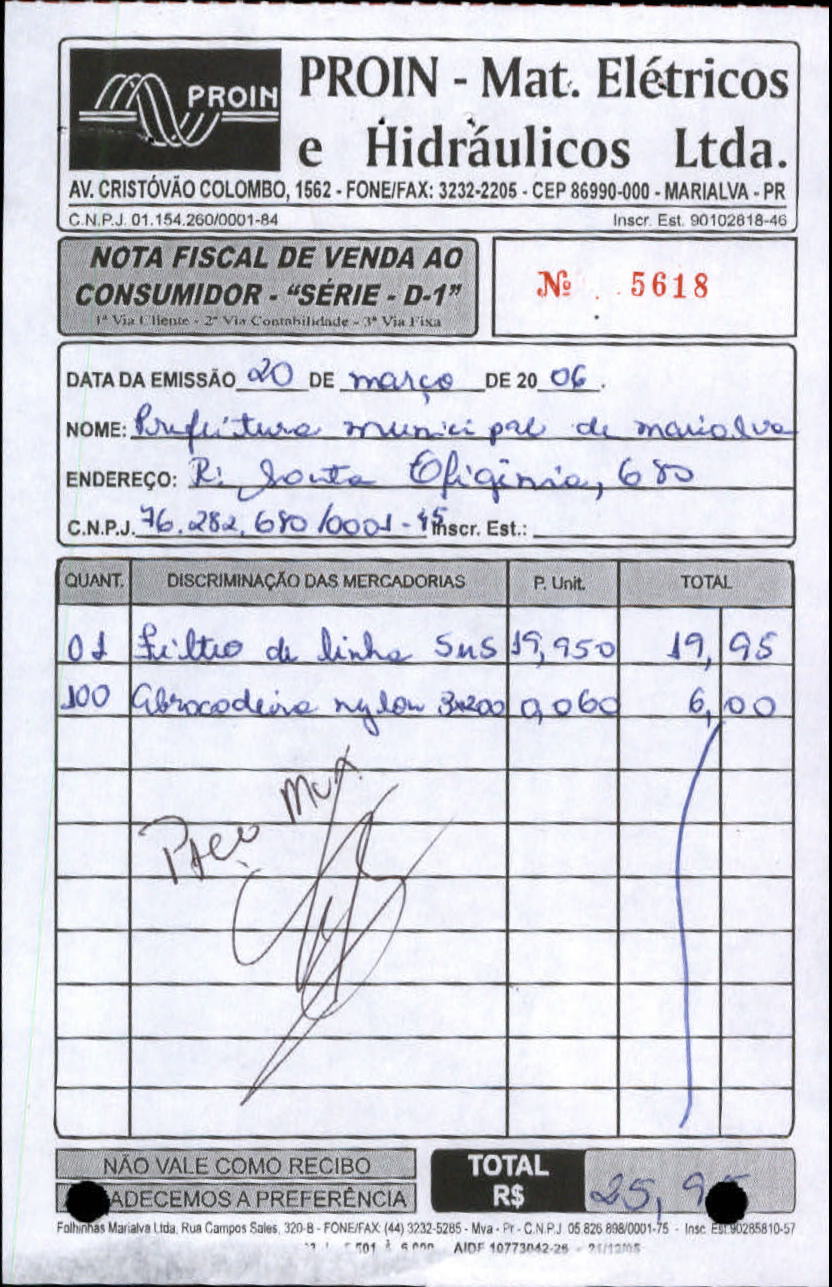 PROIN
PROIN - Mat. Elétricos
e Hidráulicos Ltda.
AV. CRISTÓVÃO COLOMBO, 1562 - FONE/FAX: 3232-2205 - CEP 86990-000 - MARIALVA - PR
C.N.P.J. 01.154.260/0001-84 Inscr. Est. 90102618-46
NOTA FISCAL DE VENDA AO
CONSUMIDOR - "SÉRIE - D-1"
1ª Via Cliente - 2ª Via Contabilidade - 3ª Via Fixa
Nº 5618
DATA DA EMISSÃO 20 DE março DE 20 06.
NOME: Prefeitura municipal de marialva
ENDEREÇO: R: Santa Efigênia, 680
C.N.P.J. 76.282.680/0001-45 Inscr. Est.:
QUANT. DISCRIMINAÇÃO DAS MERCADORIAS P. Unit. TOTAL
01 Filtro de linha SMS 19,950 19,95
100 abraçadeira nylon 3x200 0,060 6,00
NÃO VALE COMO RECIBO
ADECEMOS A PREFERÊNCIA
TOTAL
R$ 25,95
Folhinhas Marialva Ltda, Rua Campos Sales, 320-B - FONE/FAX: (44) 3232-5285 - Mva - Pr - C.N.P.J. 05 826 898/0001-75 - Insc. Est. 90285810-57
AIDF 10773042-26